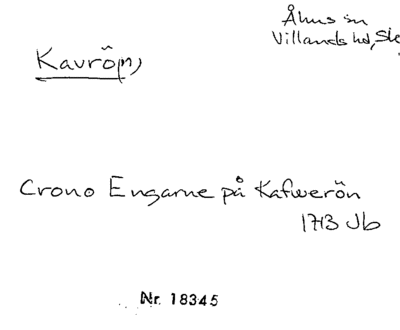 Åhus sn
Villands hd, Sk
Kavrö(n)
Crono Engarne på Kafwerön
1713 Jb
Nr. 18345